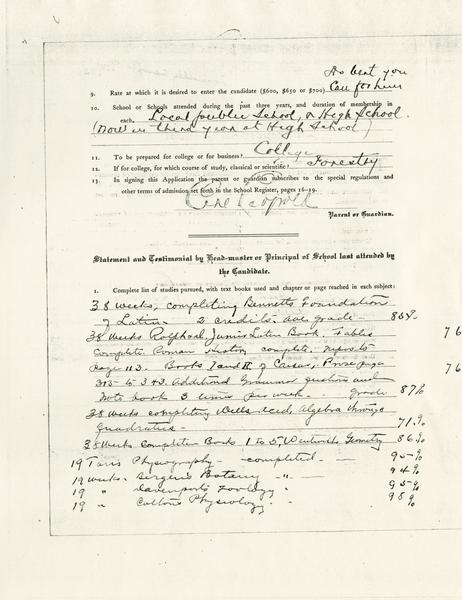 As best you
9. Rate at which it is desired to enter the candidate ($600, $650 or $700) Can for him
10. School or Schools attended during the past three years, and duration of membership in
each. Local public School, & High School.
(Now in third year at High School)
11. To be prepared for college or for business? College
12. If for college, for which course of study, classical or scientific? Forestry
13. In signing this Application the parent or guardian subscribes to the special regulations and
other terms of admission set forth in the School Register, pages 16-19.
Carl Leopold
Parent or Guardian.
Statement and Testimonial by Head-master or Principal of School last attended by
the Candidate.
1. Complete list of studies pursued, with text books used and chapter or page reached in each subject:
38 weeks, completing Bennetts Foundation
of Latin - 2 credits. ave grade - 85%
38 weeks Rolfe and Junior Latin Book. Fables
Complete Roman History complete, Nepos to
page 113. Books I and II of Caesar, Prose page
315 to 343. Additional Grammar questions and
note book 5 times per week. - Grade 87%
38 weeks completing Wells Acad. Algebra through
Quadratics - 71%
38 weeks Complete Books 1 to 5, Wentworths Geometry 86%
19 Physiography - completed. - 95%
19 weeks. Bergen's Botany -"- 94%
19 " Davenports Zoology " 95%
19 " Coltons Physiology " 95%
76
76